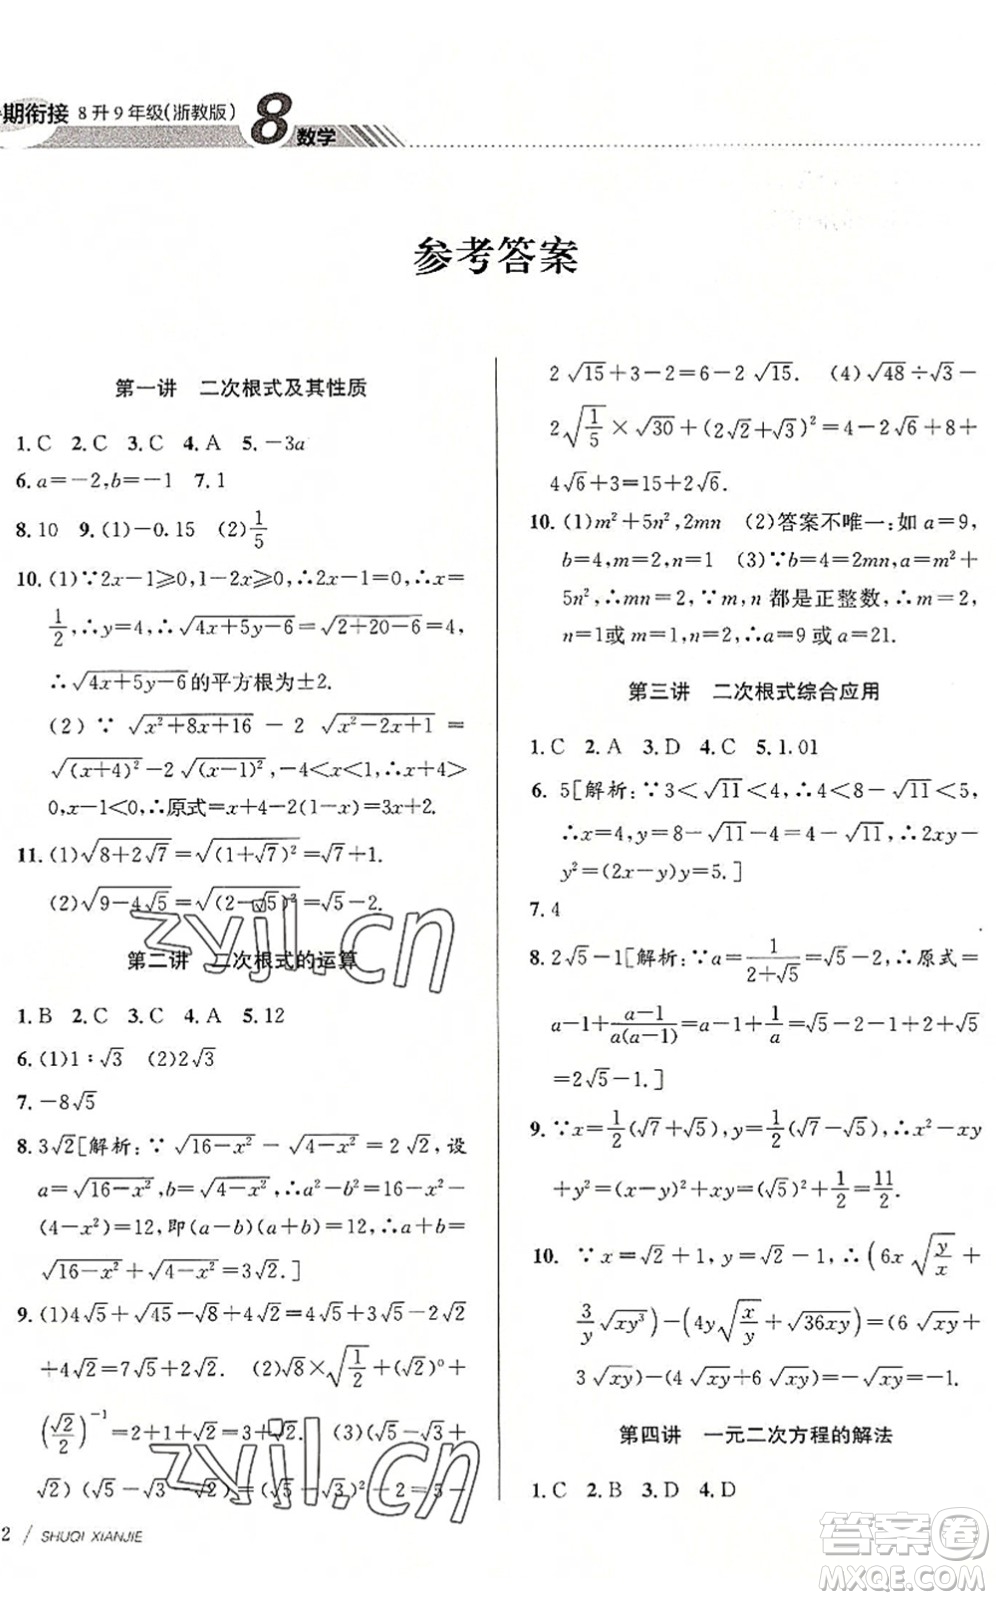 期衔接 8升9年级(浙教版) 8 数学
参考答案
第一讲 二次根式及其性质
1.C 2.C 3.C 4.A 5.－3a
6.a＝－2,b＝－1 7.1
8.10 9.(1)－0.15 (2)1/5
10.(1)∵2x－1≥0,1－2x≥0,∴2x－1＝0,∴x＝
1/2,∴y＝4,∴√(4x＋5y－6)＝√(2＋20－6)＝4,
∴√(4x＋5y－6)的平方根为±2.
(2)∵√(x²＋8x＋16)－2√(x²－2x＋1)＝
√(x＋4)²－2√(x－1)²,－4<x<1,∴x＋4>
0,x－1<0,∴原式＝x＋4－2(1－x)＝3x＋2.
11.(1)√(8＋2√7)＝√((1＋√7)²)＝√7＋1.
(2)√(9－4√5)＝√((2－√5)²)＝√5－2.
第二讲 二次根式的运算
1.B 2.C 3.C 4.A 5.12
6.(1)1∶√3 (2)2√3
7.－8√5
8.3√2[解析:∵√(16－x²)－√(4－x²)＝2√2,设
a＝√(16－x²),b＝√(4－x²),∴a²－b²＝16－x²－
(4－x²)＝12,即(a－b)(a＋b)＝12,∴a＋b＝
√(16－x²)＋√(4－x²)＝3√2.]
9.(1)4√5＋√45－√8＋4√2＝4√5＋3√5－2√2
＋4√2＝7√5＋2√2. (2)√8×√(1/2)＋(√2)⁰＋
(√2/2)⁻¹＝2＋1＋√2＝3＋√2. (3)(√5－√3＋
√2)(√5－√3－√2)＝(√5－√3)²－(√2)²＝5－
2√15＋3－2＝6－2√15. (4)√48÷√3－
2√(1/5)×√30＋(2√2＋√3)²＝4－2√6＋8＋
4√6＋3＝15＋2√6.
10.(1)m²＋5n²,2mn (2)答案不唯一:如a＝9,
b＝4,m＝2,n＝1 (3)∵b＝4＝2mn,a＝m²＋
5n²,∴mn＝2,∵m,n都是正整数,∴m＝2,
n＝1或m＝1,n＝2,∴a＝9或a＝21.
第三讲 二次根式综合应用
1.C 2.A 3.D 4.C 5.1.01
6.5[解析:∵3<√11<4,∴4<8－√11<5,
∴x＝4,y＝8－√11－4＝4－√11,∴2xy－
y²＝(2x－y)y＝5.]
7.4
8.2√5－1[解析:∵a＝1/(2＋√5)＝√5－2,∴原式＝
a－1＋(a－1)/(a(a－1))＝a－1＋1/a＝√5－2－1＋2＋√5
＝2√5－1.]
9.∵x＝1/2(√7＋√5),y＝1/2(√7－√5),∴x²－xy
＋y²＝(x－y)²＋xy＝(√5)²＋1/2＝11/2.
10.∵x＝√2＋1,y＝√2－1,∴(6x√(y/x)＋
3/y√(xy³))－(4y√(x/y)＋√(36xy))＝(6√(xy)＋
3√(xy))－(4√(xy)＋6√(xy))＝－√(xy)＝－1.
第四讲 一元二次方程的解法
1.C 2.B 3.D 4.D
2 / SHUQI XIANJIE
zyjl.cn
zyjl.cn
答案卷
MXQE.COM